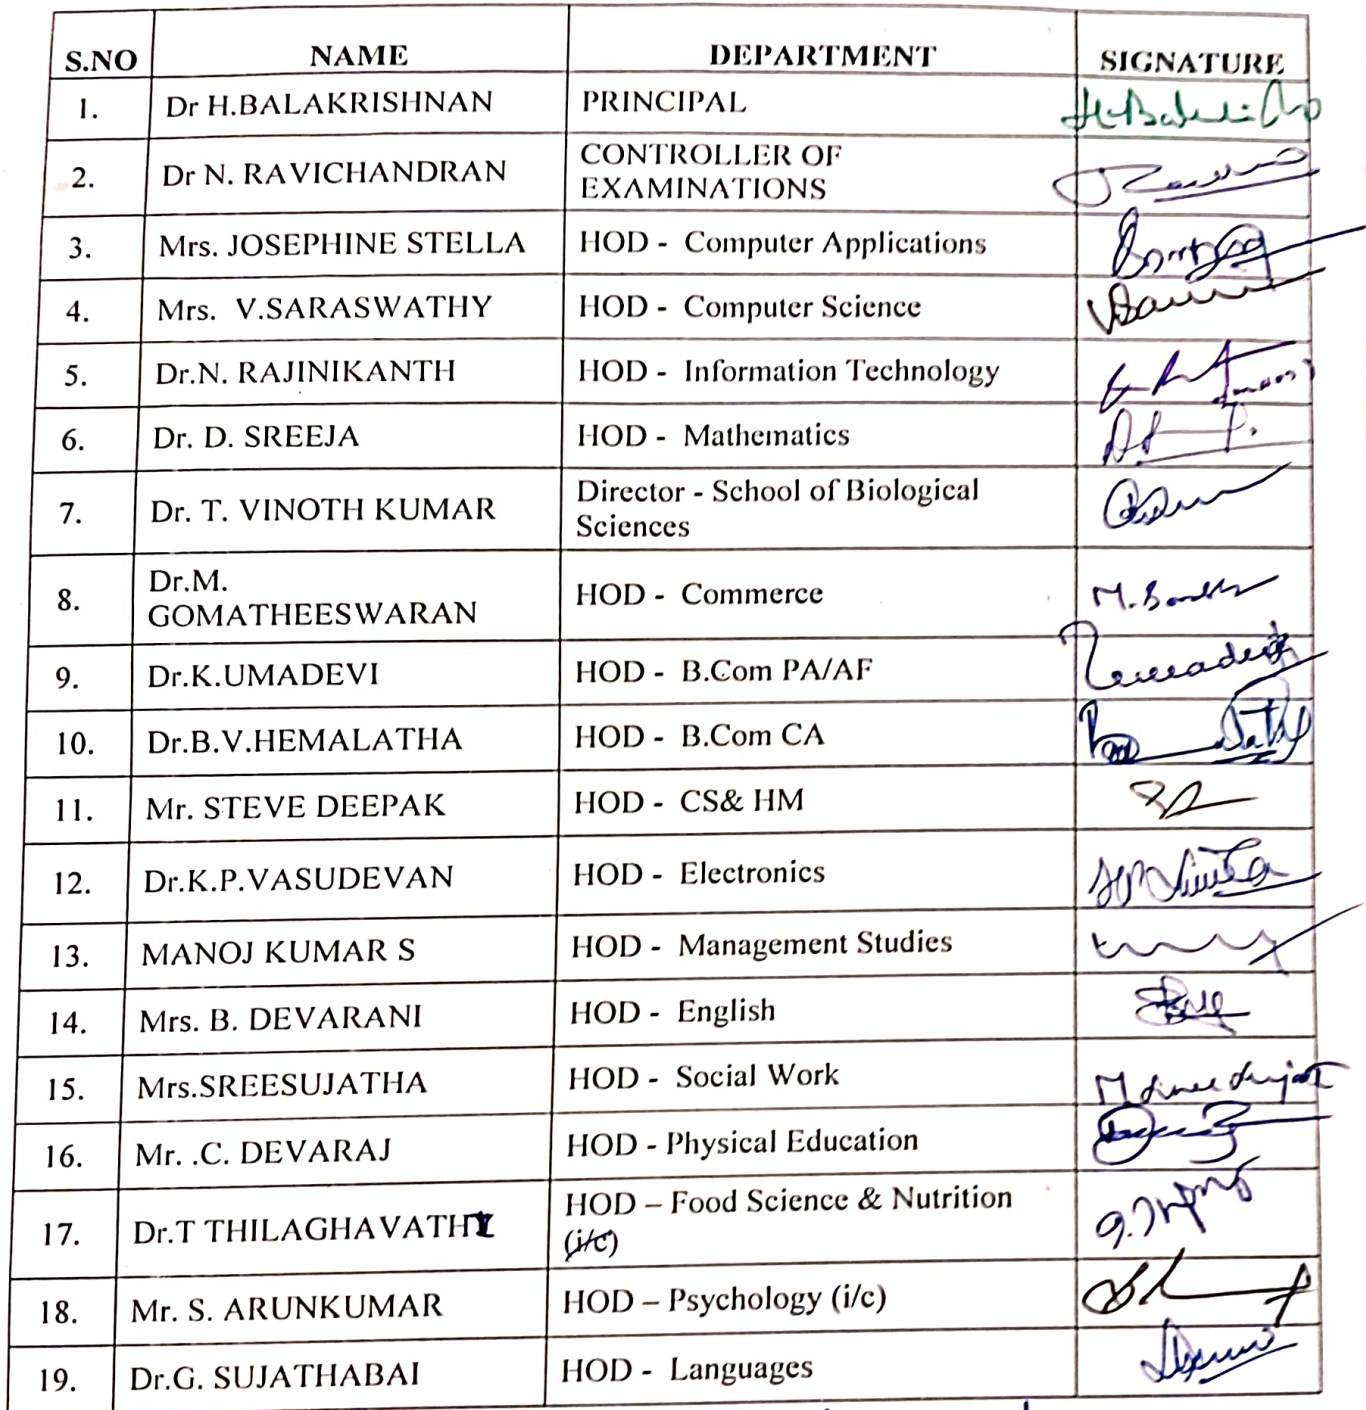 S.NO NAME DEPARTMENT SIGNATURE
1. Dr H.BALAKRISHNAN PRINCIPAL
2. Dr N. RAVICHANDRAN CONTROLLER OF
EXAMINATIONS
3. Mrs. JOSEPHINE STELLA HOD - Computer Applications
4. Mrs. V.SARASWATHY HOD - Computer Science
5. Dr.N. RAJINIKANTH HOD - Information Technology
6. Dr. D. SREEJA HOD - Mathematics
7. Dr. T. VINOTH KUMAR Director - School of Biological
Sciences
8. Dr.M.
GOMATHEESWARAN HOD - Commerce
9. Dr.K.UMADEVI HOD - B.Com PA/AF
10. Dr.B.V.HEMALATHA HOD - B.Com CA
11. Mr. STEVE DEEPAK HOD - CS& HM
12. Dr.K.P.VASUDEVAN HOD - Electronics
13. MANOJ KUMAR S HOD - Management Studies
14. Mrs. B. DEVARANI HOD - English
15. Mrs.SREESUJATHA HOD - Social Work
16. Mr. .C. DEVARAJ HOD - Physical Education
17. Dr.T THILAGHAVATHI HOD – Food Science & Nutrition
(i/c)
18. Mr. S. ARUNKUMAR HOD – Psychology (i/c)
19. Dr.G. SUJATHABAI HOD - Languages